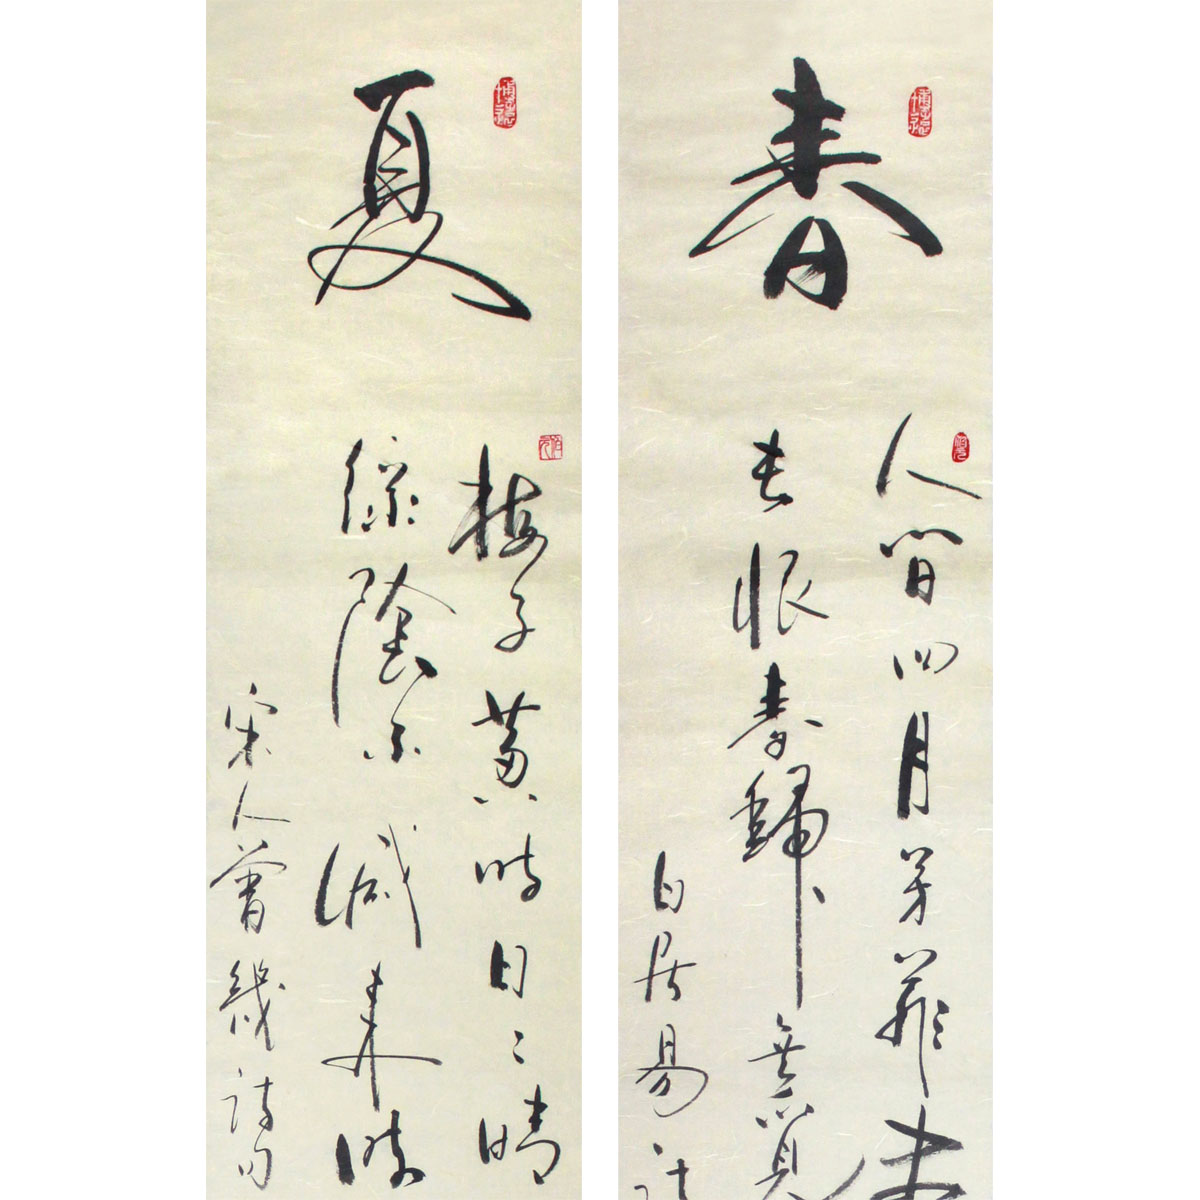 春
人間四月芳菲
長恨春歸無覓
白居易詩
夏
梅子黄時日〻晴
綠陰不減來時
宋人曾幾詩句